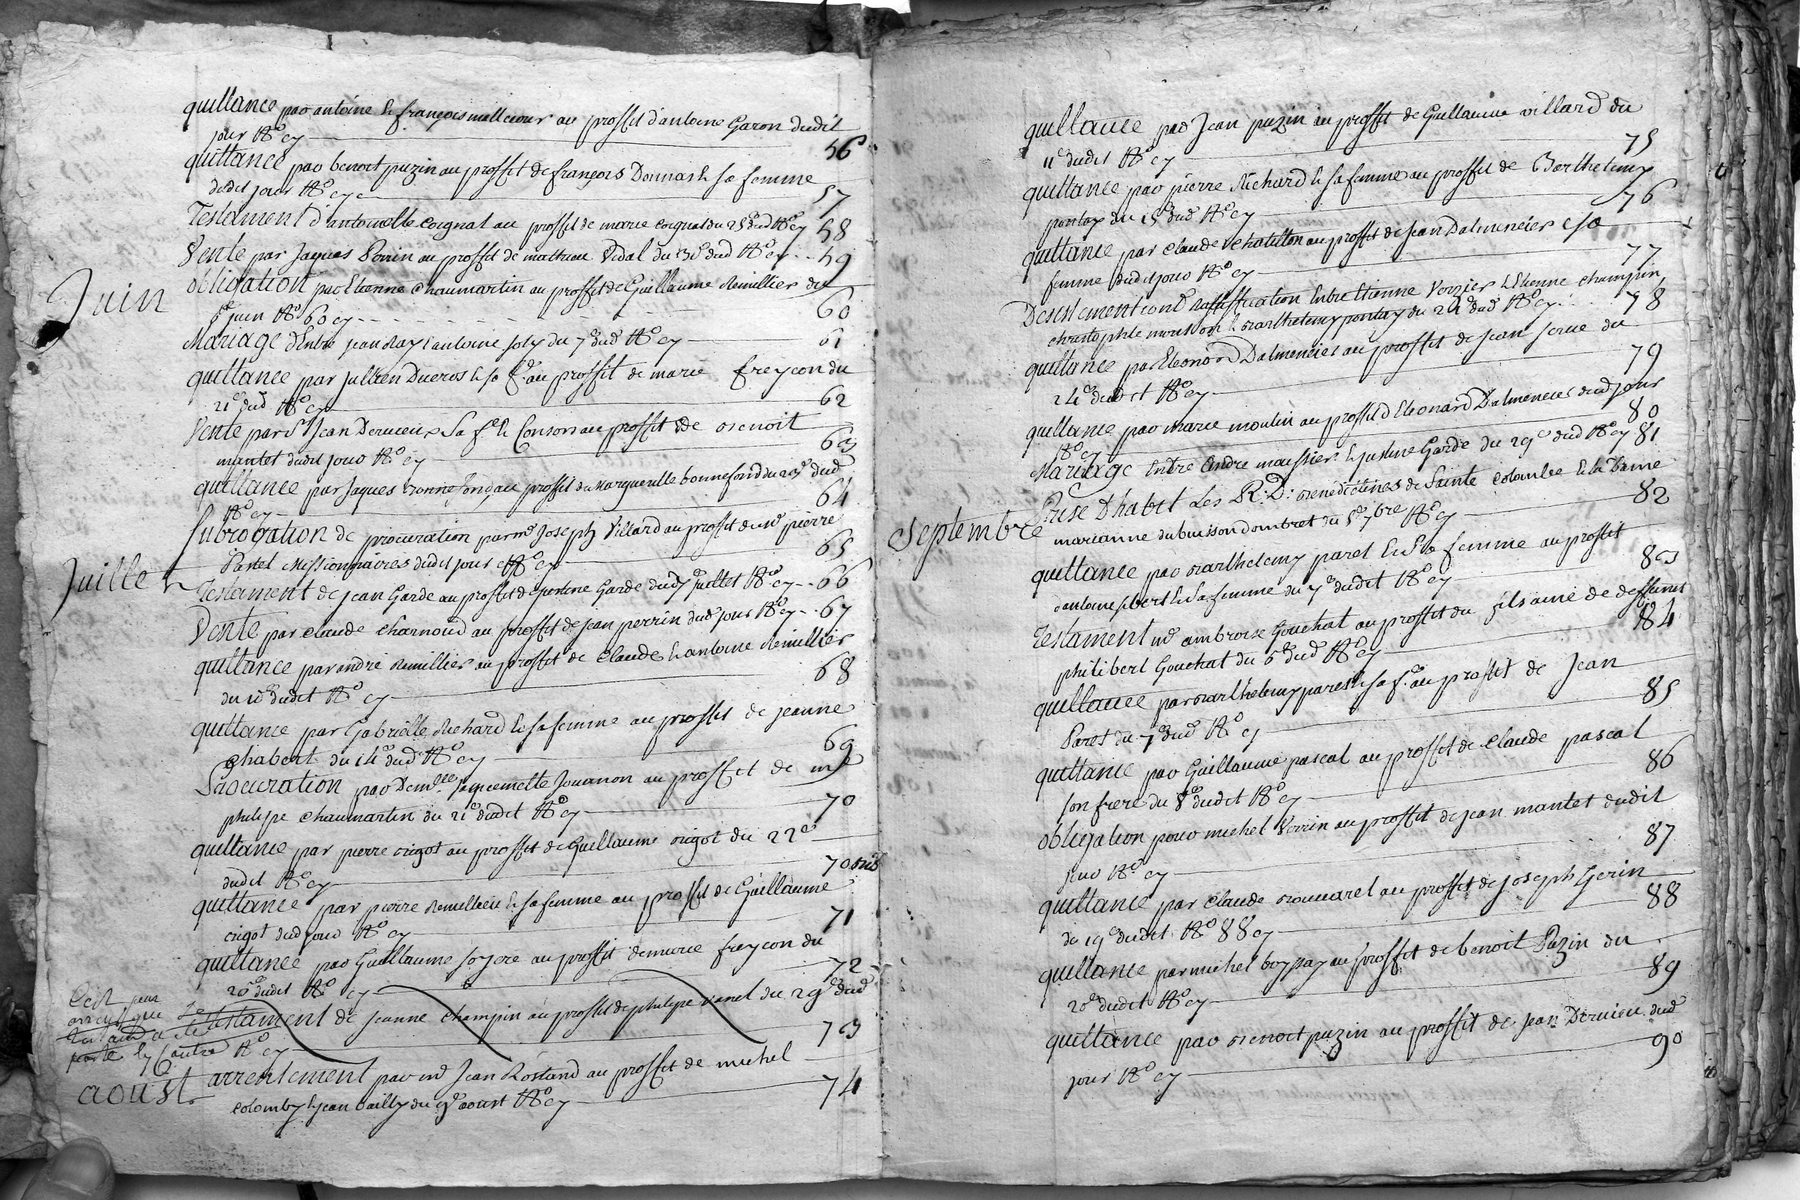 quittance par antoine & françois mallecour au proffit d'antoine Garon dudit
jour N.º cy 56
quittance par benoit puzin au proffit de françois Donnas & sa femme
dudit jour N.º cy 57
Testament d'antoinette Coignat au proffit de marie coignat du 25.e dud N.º cy 58
Vente par Jaques Perrin au proffit de mathieu Vidal du 30.e dud N.º cy 59
Juin
obligation par Etienne Chaumartin au proffit de Guillaume Remillier du
5.e juin N.º 60 cy 60
Mariage d'Entre jean Ray & antoine joly du 7.e dud N.º cy 61
quittance par jullien Ducros & sa f.e au proffit de marie freycon du
21.e dud N.º cy 62
Vente par S.r Jean Dervieux Sa f.e & Consors au proffit de benoit
mantet dudit jour N.º cy 63
quittance par Jaques bonnefond au proffit de marguerite bonnefond du 23.e dud
N.º cy 64
Subrogation de procuration par m.e Joseph Villard au proffit du m.e pierre
Pastel Missionnaires dudit jour N.º cy 65
Juillet
Testament de jean Garde au proffit de justine Garde du 7.e juillet N.º cy 66
Vente par claude charnoud au proffit de jean perrin dud jour N.º cy 67
quittance par andré Remillier au proffit de Claude & antoine Remillier
du 10.e dudit N.º cy 68
quittance par Gabrielle Richard & sa femme au proffit de jeanne
Chabert du 14.e dud N.º cy 69
Procuration par Dem.lle jouanon au proffit de m.e
philipe chaumartin du 21.e dudit N.º cy 70
quittance par pierre rigot au proffit de Guillaume rigot du 22.e
dudit N.º cy 70 bis
quittance par pierre Remillieu & sa femme au proffit de Guillaume
rigot dud jour N.º cy 71
quittance par Guillaume soyere au proffit de marie freycon du
20.e dudit N.º cy 72
C'est par
Testament de jeanne Champin au proffit de philipe vanel du 29.e dud
N.º cy 73
aoust
arrentement par m.e Jean Rostand au proffit de michel
colomby & jean bailly du 9.e aoust N.º cy 74
quittance par Jean puzin au proffit de Guillaume villard du
11.e dudit N.º cy 75
quittance par pierre Richard & sa femme au proffit de Barthelemy
pontay du 15.e dud N.º cy 76
quittance par claude chatillon au proffit de jean Dalmencier & sa
femme dudit jour N.º cy 77
Desistement cond ratiffication Entre Etienne Voizier & Etienne champin,
christophle & barthelemy pontay du 24.e dud N.º cy 78
quittance par Eleonord Dalmencier au proffit de jean serve du
24.e dudit N.º cy 79
quittance par marie moulin au proffit d'Eleonard Dalmencier dud jour
N.º cy 80
Mariage Entre andre & justine Garde du 29.e dud N.º cy 81
Septembre
Prise D'habit Les R: D: benedictines de Sainte colombe & la Dame
marianne dubuisson dombret du 5.e 7bre N.º cy 82
quittance par barthelemy paret & sa femme au proffit
d'antoine jibert & sa femme du 7.e dudit N.º cy 83
Testament m.e ambroise Gouchat au proffit du fils ainé de deffunt
philibert Gouchat du 6.e dud N.º cy 84
quittance par barthelemy paret & sa f.e au proffit de Jean
Paret du 7.e dud N.º cy 85
quittance par Guillaume pascal au proffit de claude pascal
son frere du 8.e dudit N.º cy 86
obligation pour michel Perrin au proffit de jean mantet dudit
jour N.º cy 87
quittance par claude au proffit de joseph Gerin
du 19.e dudit N.º 88 cy 88
quittance par michel boyssay au proffit de benoit Puzin du
20.e dudit N.º cy 89
quittance par benoit puzin au proffit de jean Dervieu dud
jour N.º cy 90